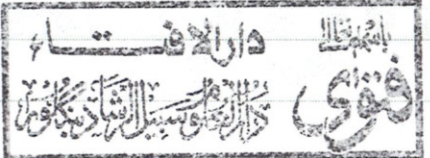 باسمہ تعالیٰ
فتویٰ
دار الافتاء
دارالعلوم سبیل الرشاد بنگلور